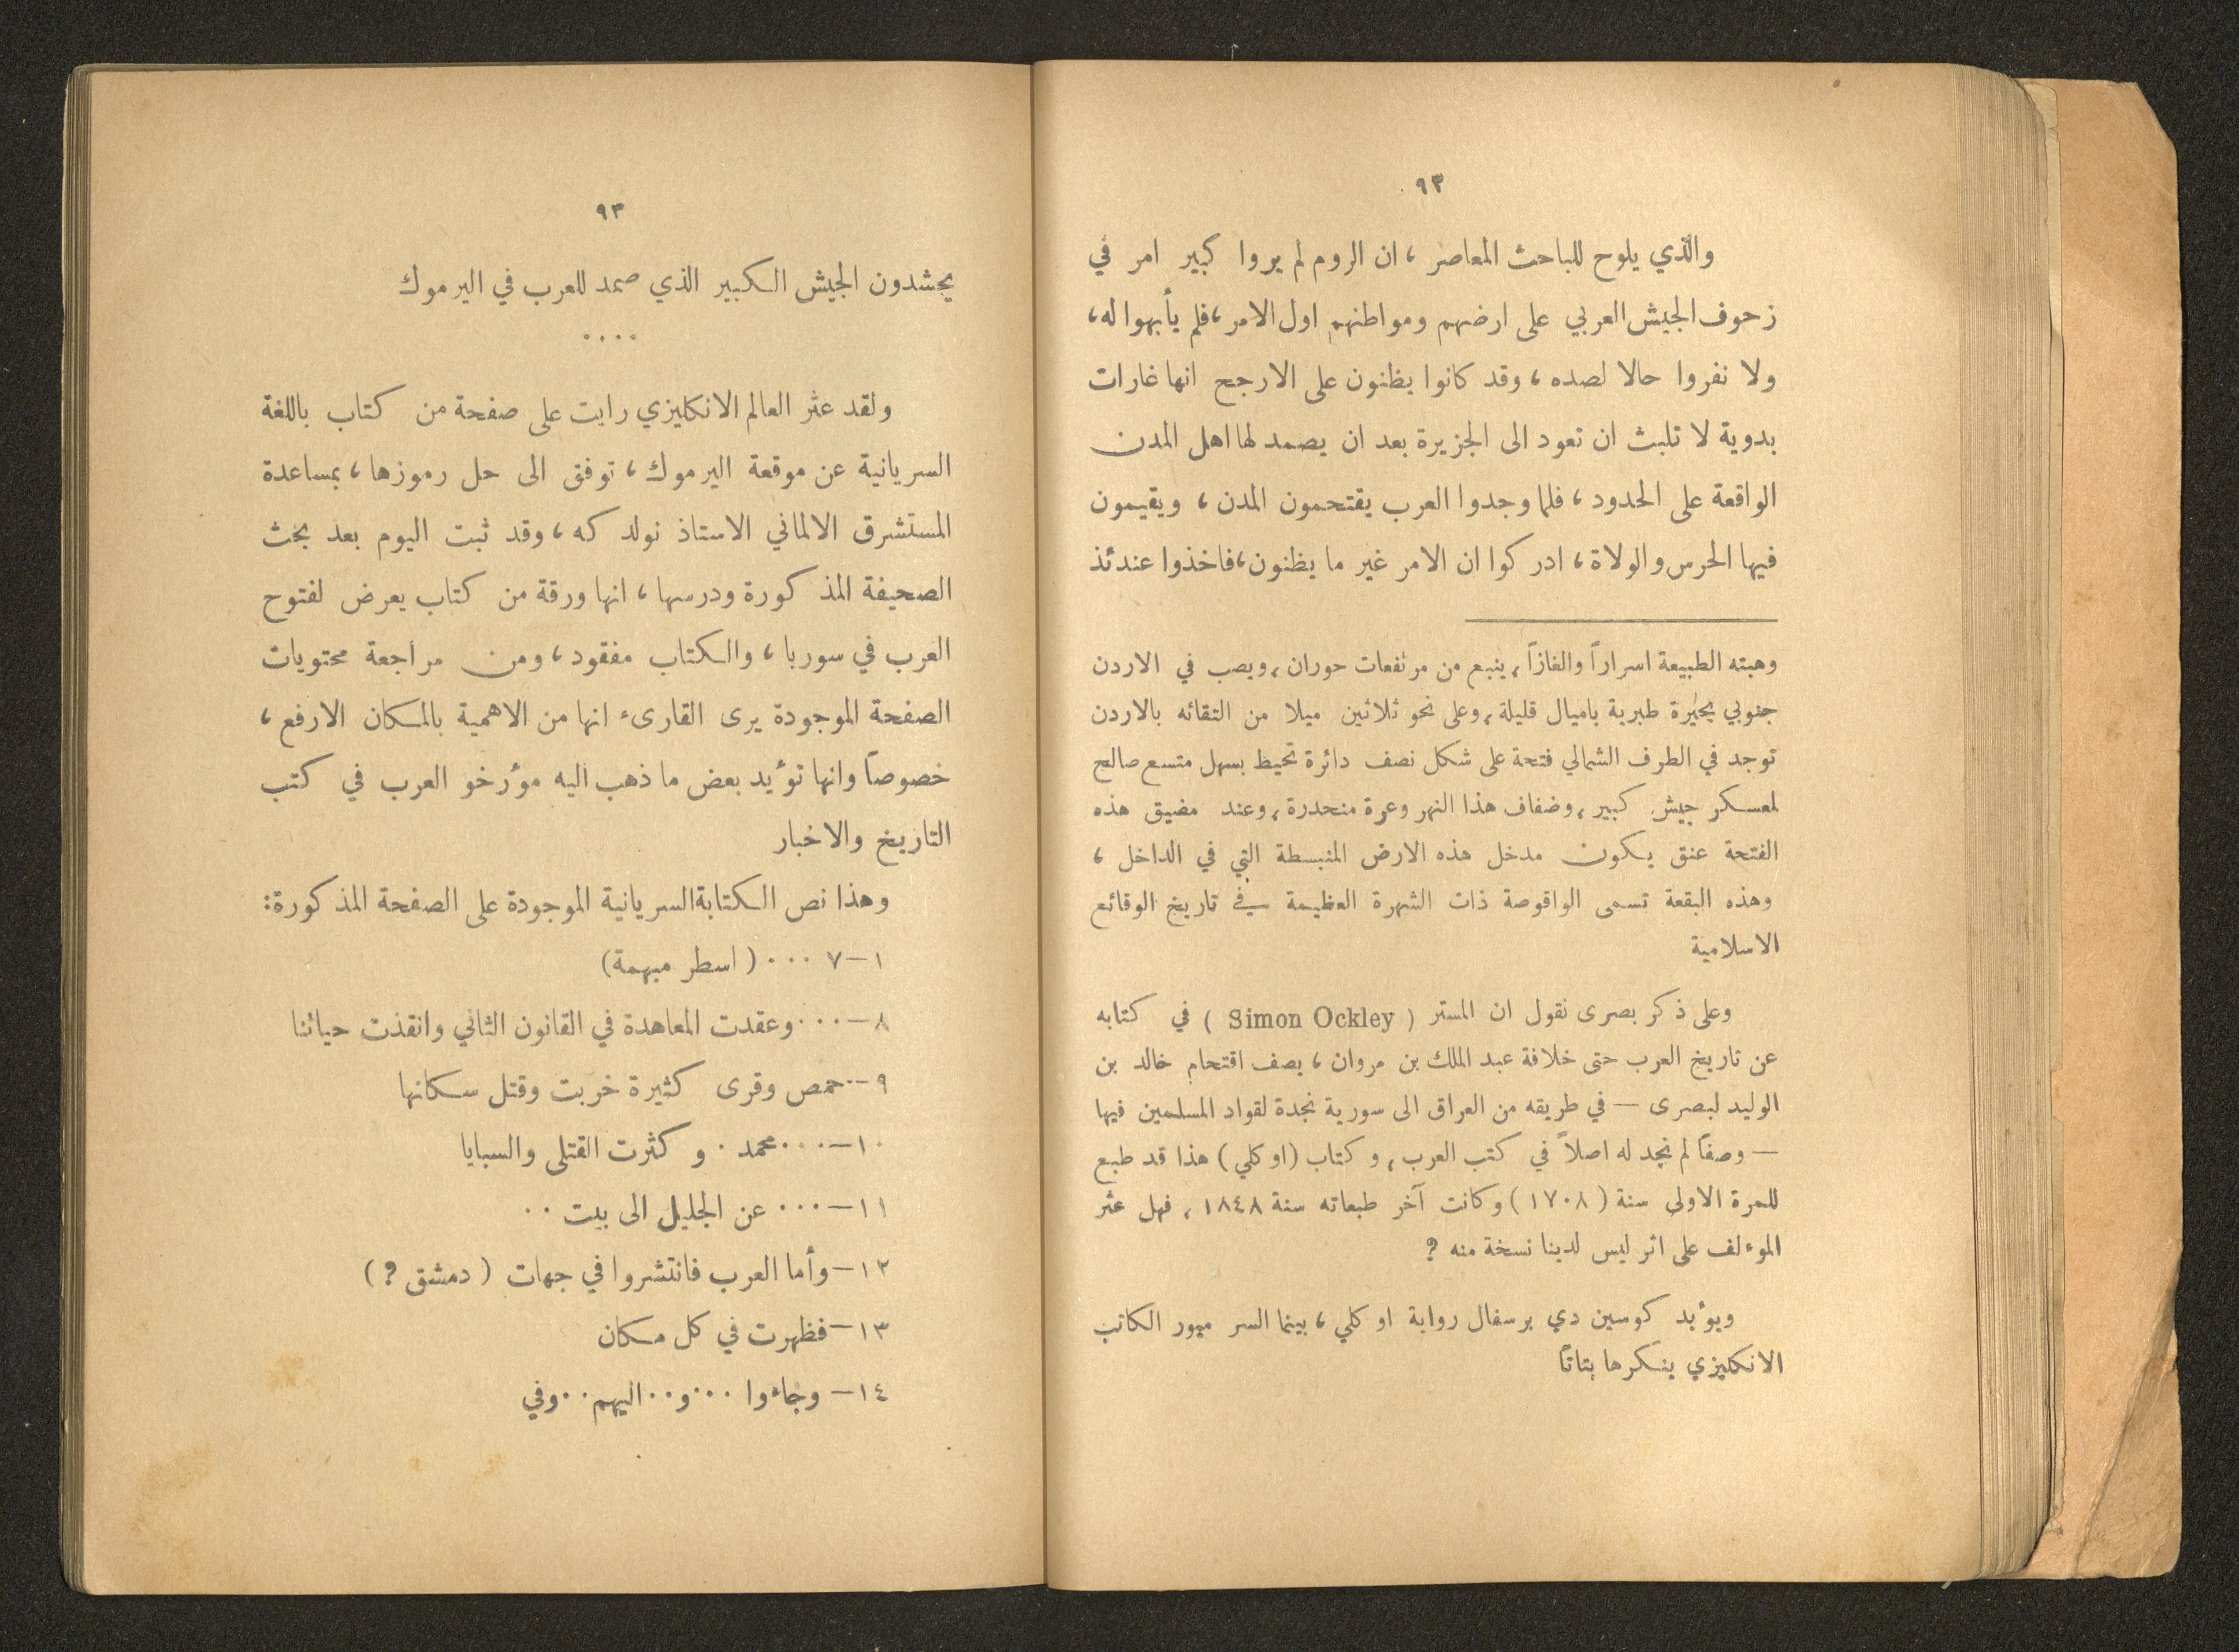 ٩٣
والذي يلوح للباحث المعاصر، ان الروم لم يروا كبير امر في
زحوف الجيش العربي على ارضهم ومواطنهم اول الامر، فلم يأبهوا له،
ولا نفروا حالا لصده، وقد كانوا يظنون على الارجح انها غارات
بدوية لا تلبث ان تعود الى الجزيرة بعد ان يصمد لها اهل المدن
الواقعة على الحدود، فلما وجدوا العرب يقتحمون المدن، ويقيمون
فيها الحرس والولاة، ادركوا ان الامر غير ما يظنون، فاخذوا عندئذ
وهبته الطبيعة اسراراً والغازاً، ينبع من مرتفعات حوران، ويصب في الاردن
جنوبي بحيرة طبرية باميال قليلة، وعلى نحو ثلاثين ميلا من التقائه بالاردن
توجد في الطرف الشمالي فتحة على شكل نصف دائرة تحيط بسهل متسع صالح
لمعسكر جيش كبير، وضفاف هذا النهر وعرة منحدرة، وعند مضيق هذه
الفتحة عنق يكون مدخل هذه الارض المنبسطة التي في الداخل،
وهذه البقعة تسمى الواقوصة ذات الشهرة العظيمة في تاريخ الوقائع
الاسلامية
وعلى ذكر بصرى نقول ان المستر ( Simon Ockley ) في كتابه
عن تاريخ العرب حتى خلافة عبد الملك بن مروان، يصف اقتحام خالد بن
الوليد لبصرى — في طريقه من العراق الى سورية نجدة لقواد المسلمين فيها
— وصفاً لم نجد له اصلاً في كتب العرب، وكتاب (اوكلي) هذا قد طبع
للمرة الاولى سنة (١٧٠٨) وكانت آخر طبعاته سنة ١٨٤٨، فهل عثر
الموءلف على اثر ليس لدينا نسخة منه ؟
ويؤيد كوسين دي برسفال رواية اوكلي، بينما السر ميور الكاتب
الانكليزي ينكرها بتاتاً
٩٣
يحشدون الجيش الكبير الذي صمد للعرب في اليرموك
....
ولقد عثر العالم الانكليزي رايت على صفحة من كتاب باللغة
السريانية عن موقعة اليرموك، توفق الى حل رموزها، بمساعدة
المستشرق الالماني الاستاذ نولدكه، وقد ثبت اليوم بعد بحث
الصحيفة المذكورة ودرسها، انها ورقة من كتاب يعرض لفتوح
العرب في سوريا، والكتاب مفقود، ومن مراجعة محتويات
الصفحة الموجودة يرى القارىء انها من الاهمية بالمكان الارفع،
خصوصاً وانها تؤيد بعض ما ذهب اليه مؤرخو العرب في كتب
التاريخ والاخبار
وهذا نص الكتابة السريانية الموجودة على الصفحة المذكورة:
١–٧ ... (اسطر مبهمة)
٨–... وعقدت المعاهدة في القانون الثاني وانقذت حياتنا
٩–..حمص وقرى كثيرة خربت وقتل سكانها
١٠–...محمد . وكثرت القتلى والسبايا
١١–... عن الجليل الى بيت ..
١٢–وأما العرب فانتشروا في جهات (دمشق ؟)
١٣–فظهرت في كل مكان
١٤– وجاءوا ...و..اليهم..وفي